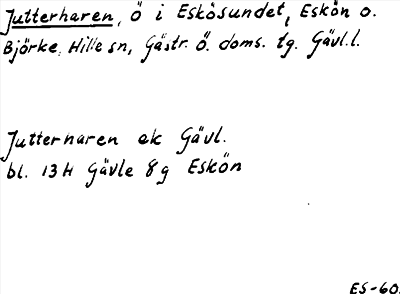 Jutterharen, Ö i Eskösundet, Eskön o.
Björke, Hille sn, Gästr. Ö. doms. tg. Gävl.l.
Jutterharen ek Gävl.
bl. 13H Gävle 8g Eskön
ES-60